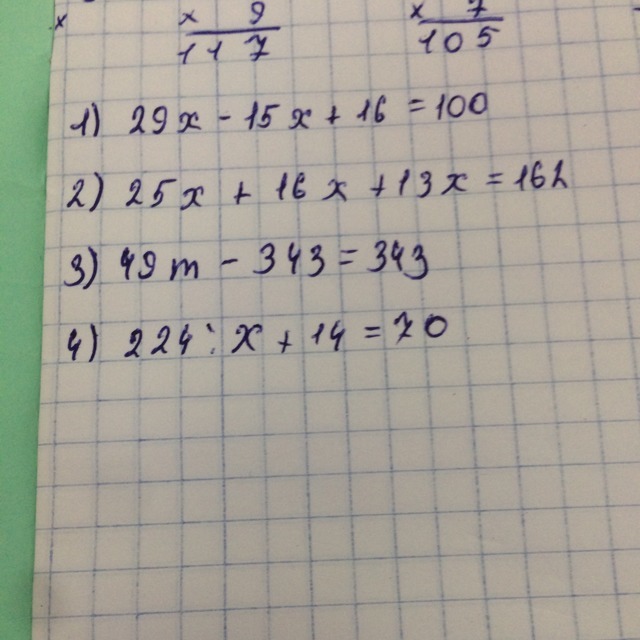 × × 9 × 7
117 105
1) 29x - 15x + 16 = 100
2) 25x + 16x + 13x = 162
3) 49m - 343 = 343
4) 224 : x + 14 = 70